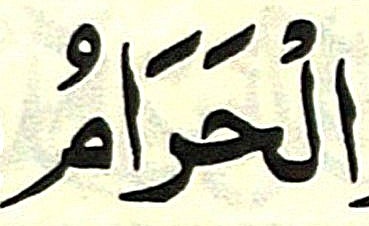 الْحَرَامُ